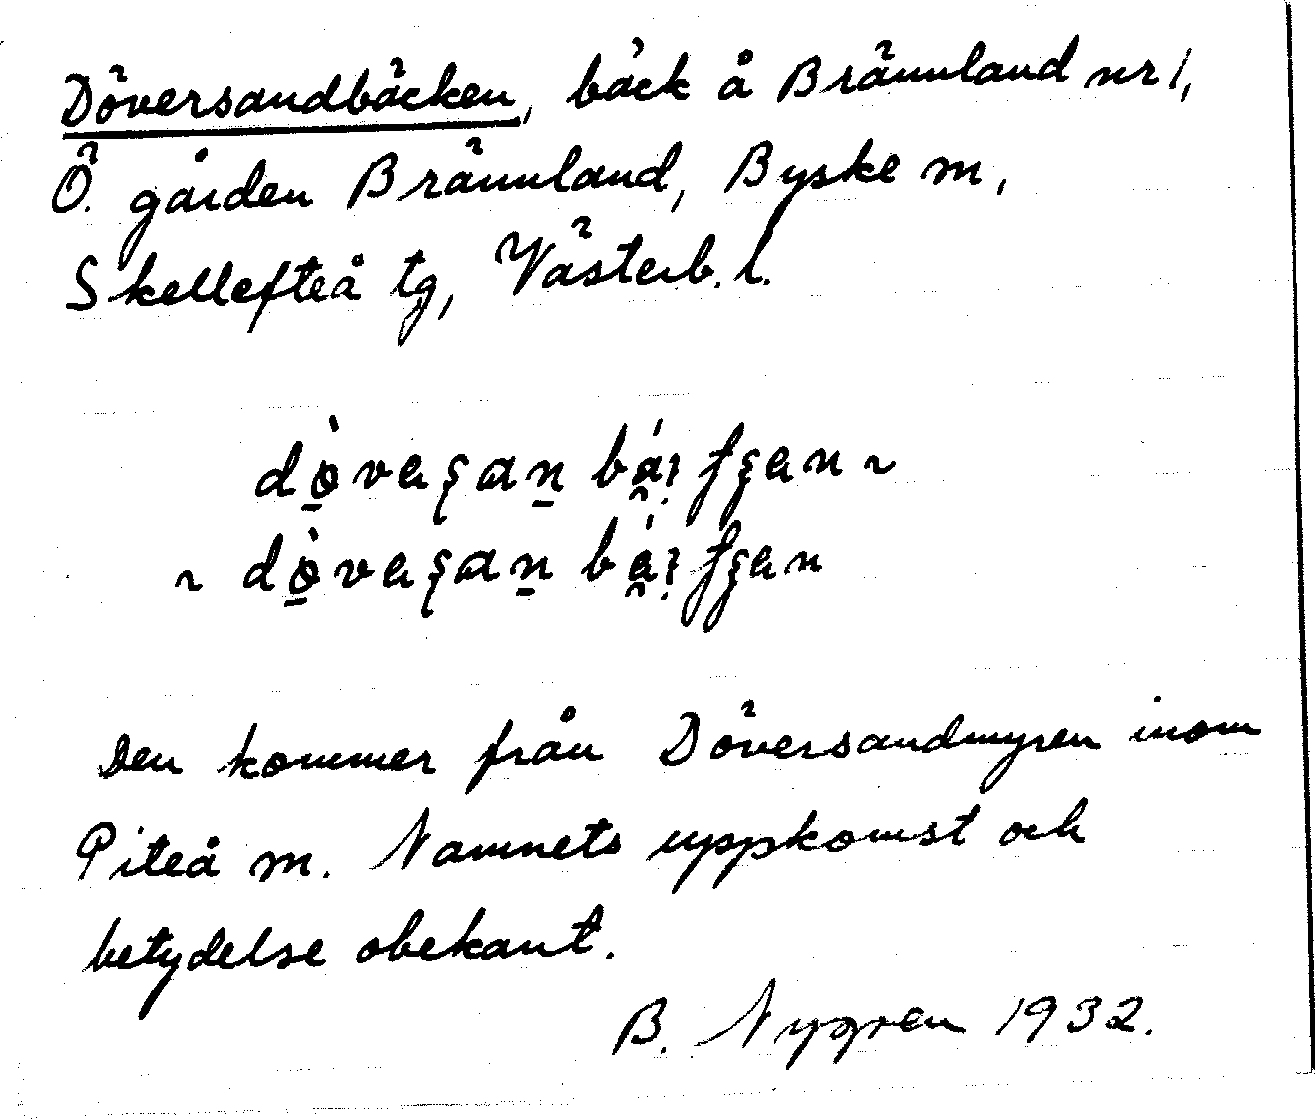 Döversandbäcken, bäck å Brännland nr 1,
Ö. gården Brännland, Byske m,
Skellefteå tg, Västerb. l.
Den kommer från Döversandmyren inom
Piteå m. Namnets uppkomst och
betydelse obekant.
B. Nygren 1932.